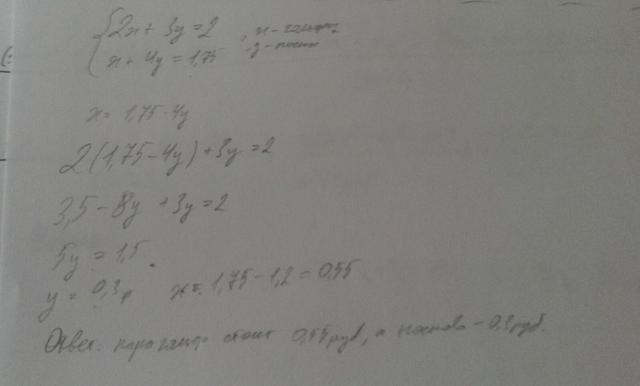 {2x + 3y = 2 , x -
{x + 4y = 1,75 y -
x = 1,75 - 4y
2(1,75 - 4y) + 3y = 2
3,5 - 8y + 3y = 2
5y = 1,5
y = 0,3р x = 1,75 - 1,2 = 0,55
Ответ: пара стоит 0,55 руб, а - 0,3 руб.